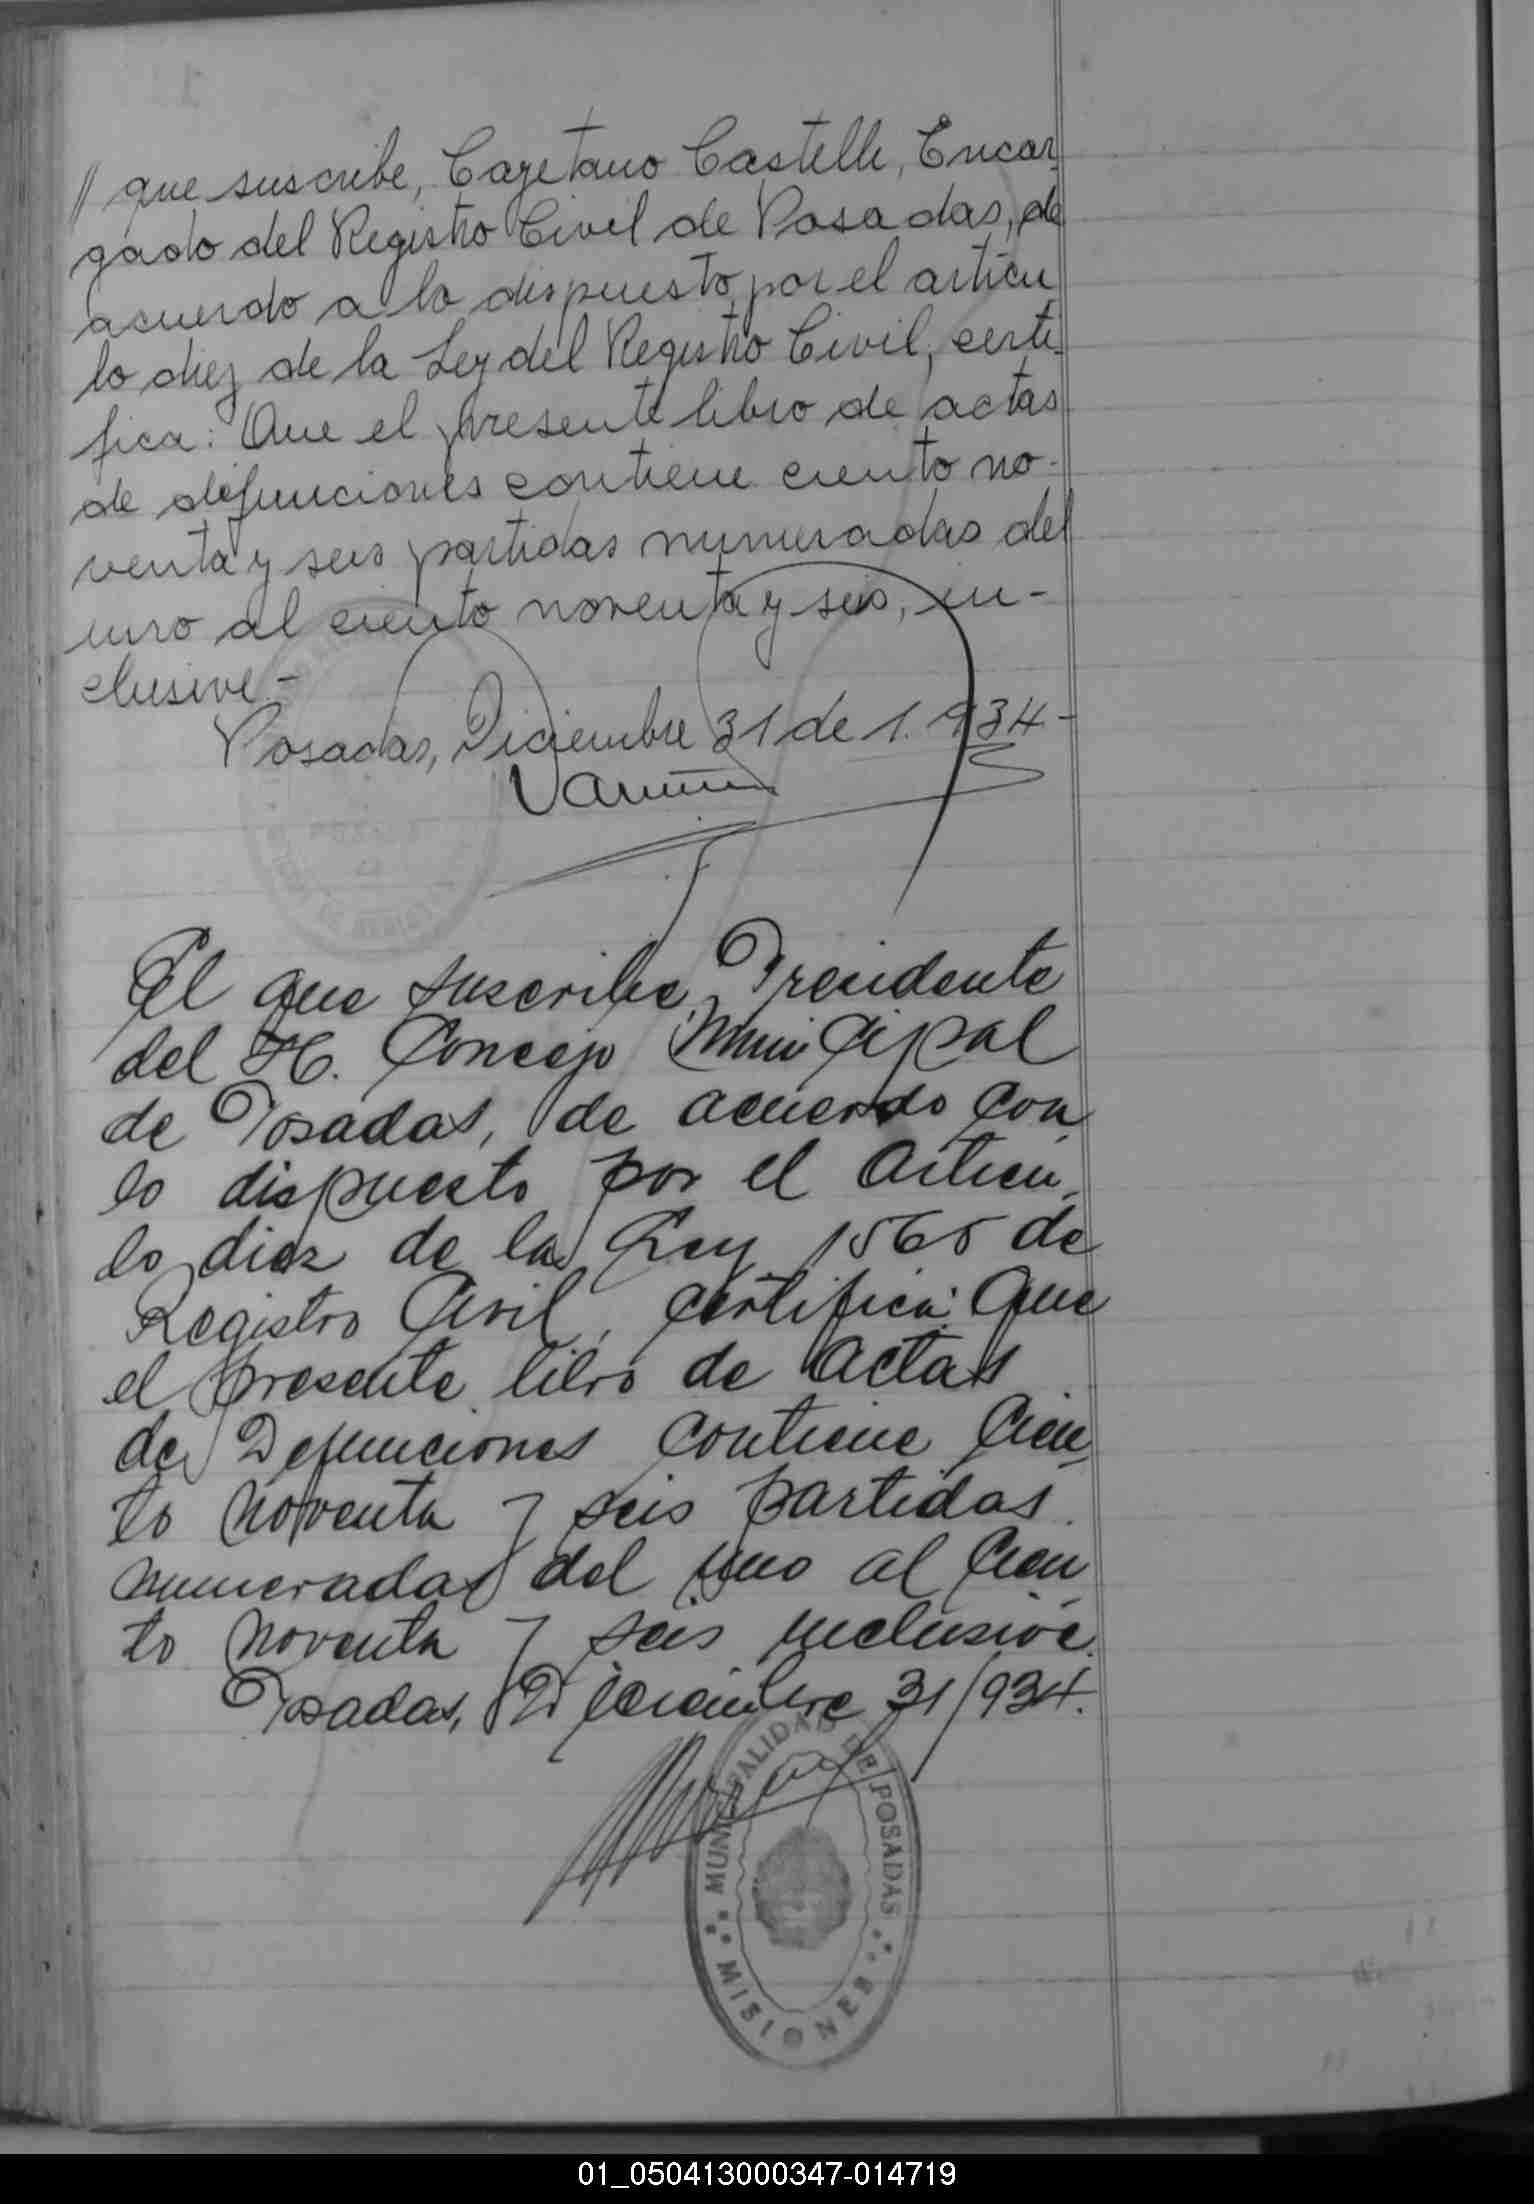 // que suscribe, Cayetano Castelli, Encar
gado del Registro Civil de Posadas, de
acuerdo a lo dispuesto por el articu
lo diez de la Ley del Registro Civil, certi
fica: Que el presente libro de actas
de defunciones contiene ciento no-
venta y seis partidas numeradas del
uno al ciento noventa y seis, in-
clusive.-
Posadas, Diciembre 31 de 1.934-
El que suscribe, Presidente
del H. Concejo Municipal
de Posadas, de acuerdo con
lo dispuesto por el articu
lo diez de la Ley 1565 de
Registro Civil, certifica: Que
el presente libro de actas
de Defunciones contiene cien
to noventa y seis partidas
numeradas del uno al cien
to noventa y seis inclusive.
Posadas, Diciembre 31/934.
MUNICIPALIDAD DE POSADAS
MISIONES
01_050413000347-014719